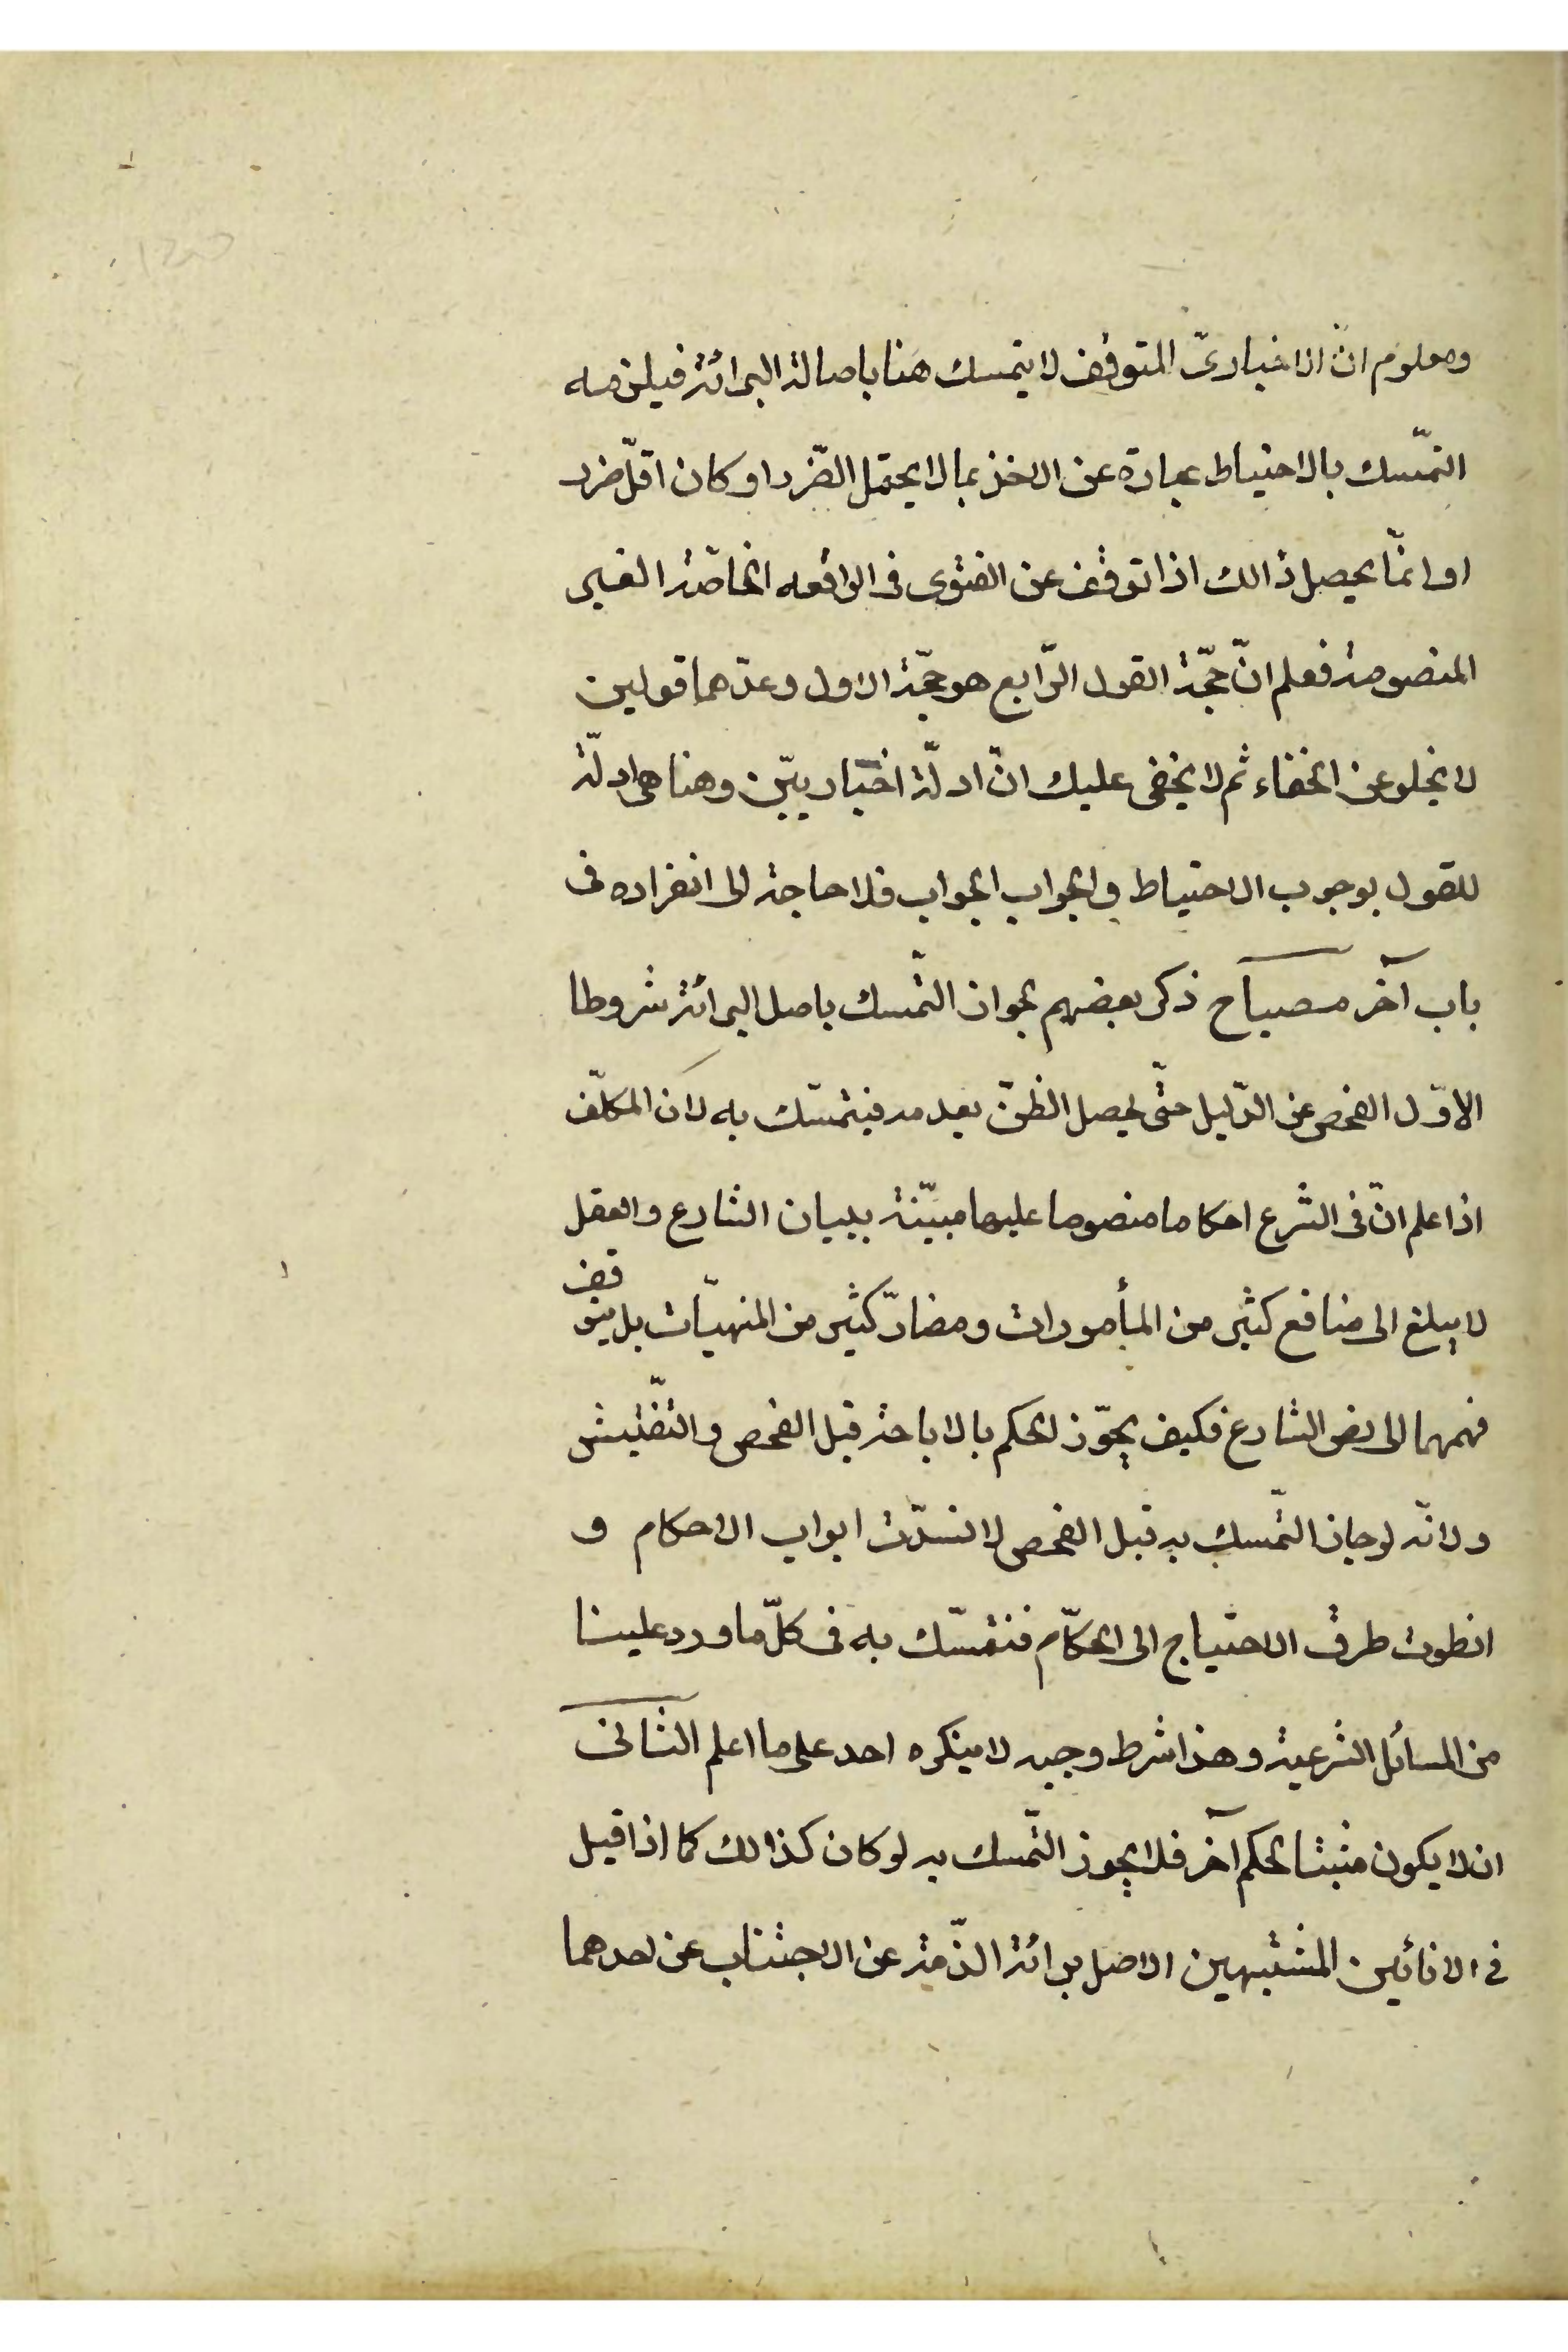 ومعلوم انّ الاخباریّ المتوقف لا یتمسك هنا باصالة البرائة فیلزمه
التمّسك بالاحتیاط عبارة عن الاخذ بمالا یحتمل الضّرر او كان اقلّ ضرر
او انّما یحصل ذالك اذا توقف عن الفتوی فی الواقعه الخاصّة الغیر
المنصوصة فعلم انّ حجّة القول الرّابع هو حجّة الاول وعدّهما قولین
لا یخلو عن الخفاء ثم لا یخفی علیك انّ ادلّة اخباریّین وهنا هی ادلّة
للقول بوجوب الاحتیاط والجواب الجواب فلا حاجة الی انفراده فی
باب آخر مصباح ذكر بعضهم لجواز التمّسك باصل البرائة شروطا
الاوّل الفحص عن الدّلیل حتّی یحصل الظنّ بعدمه فیتمسّك به لان المكلّف
اذا علم انّ فی الشرع احكاما منصوصا علیها مبیّنة ببیان الشارع والعقل
لا یبلغ الی منافع كثیر من المأمورات ومضارّ كثیر من المنهیّات بل یتوقف
فهمهما الی نص الشارع فكیف یجوّز الحكم بالاباحة قبل الفحص والتفّتیش
ولانّه لو جاز التمّسك به قبل الفحص لانسدّت ابواب الاحكام و
انطوت طرق الاحتیاج الی الحكّام فنتمسّك به فی كلّ ما ورد علینا
من المسائل الشرعیة وهذا شرط وجیه لا ینكره احد علی ما اعلم الثانی
ان لا یكون مثبتا لحكم آخر فلا یجوز التمّسك به لو كان كذالك كما اذا قیل
فی الانائین المشتبهین الاصل برائة الذّمة عن الاجتناب عن احدهما